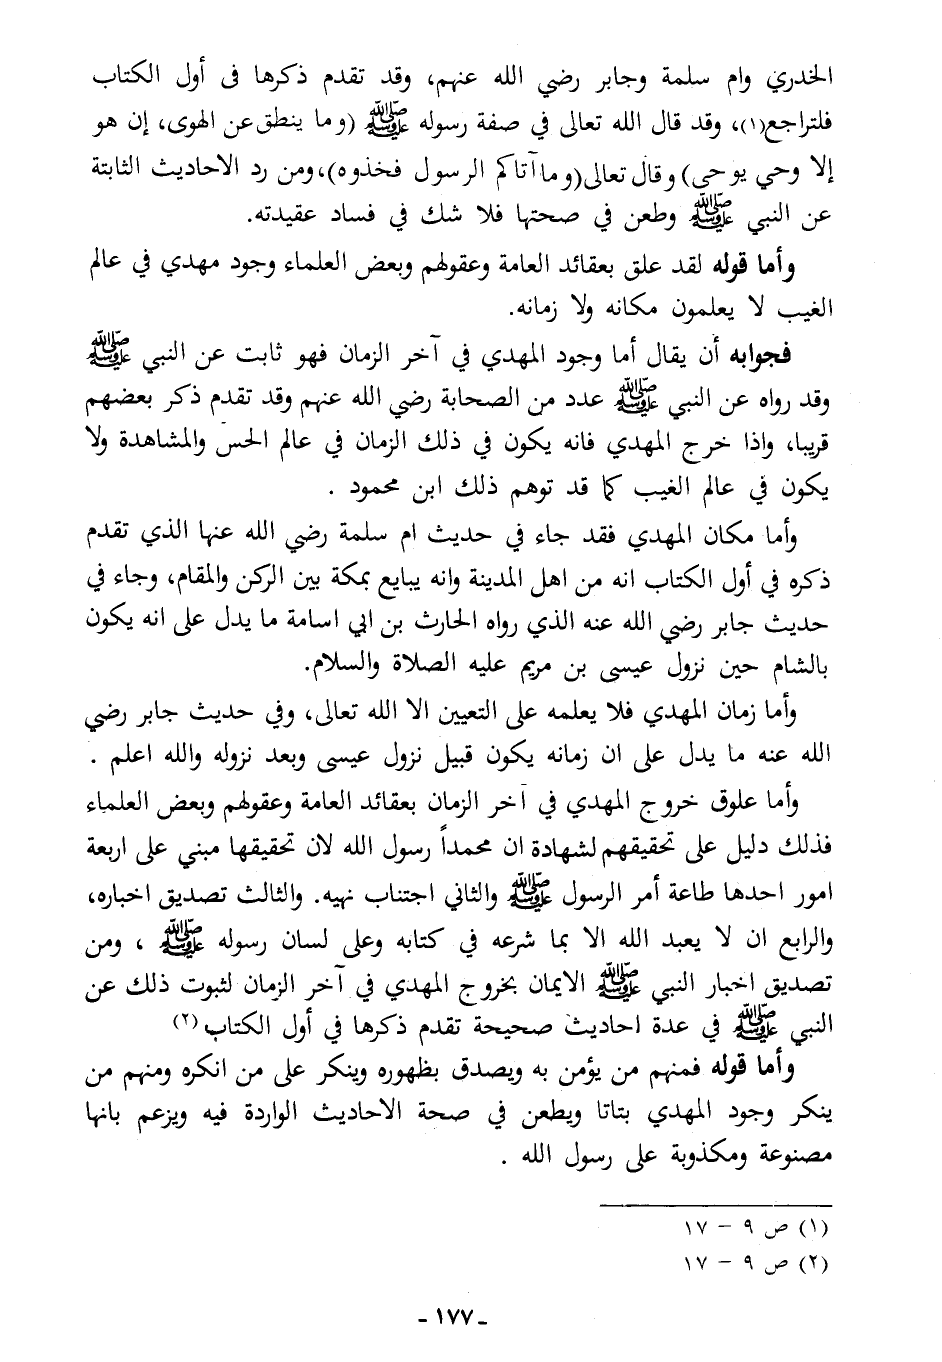 الخدري وام سلمة وجابر رضي الله عنهم، وقد تقدم ذكرها فى أول الكتاب
فلتراجع(١)، وقد قال الله تعالى في صفة رسوله ﷺ (وما ينطق عن الهوى، إن هو
إلا وحي يوحى) وقال تعالى(وما آتاكم الرسول فخذوه)، ومن رد الاحاديث الثابتة
عن النبي ﷺ وطعن في صحتها فلا شك في فساد عقيدته.
وأما قوله لقد علق بعقائد العامة وعقولهم وبعض العلماء وجود مهدي في عالم
الغيب لا يعلمون مكانه ولا زمانه.
فجوابه أن يقال أما وجود المهدي في آخر الزمان فهو ثابت عن النبي ﷺ
وقد رواه عن النبي ﷺ عدد من الصحابة رضي الله عنهم وقد تقدم ذكر بعضهم
قريبا، واذا خرج المهدي فانه يكون في ذلك الزمان في عالم الحسّ والمشاهدة ولا
يكون في عالم الغيب كما قد توهم ذلك ابن محمود .
وأما مكان المهدي فقد جاء في حديث ام سلمة رضي الله عنها الذي تقدم
ذكره في أول الكتاب انه من اهل المدينة وانه يبايع بمكة بين الركن والمقام، وجاء في
حديث جابر رضي الله عنه الذي رواه الحارث بن ابي اسامة ما يدل على انه يكون
بالشام حين نزول عيسى بن مريم عليه الصلاة والسلام.
وأما زمان المهدي فلا يعلمه على التعيين الا الله تعالى، وفي حديث جابر رضي
الله عنه ما يدل على ان زمانه يكون قبيل نزول عيسى وبعد نزوله والله اعلم .
وأما علوق خروج المهدي في آخر الزمان بعقائد العامة وعقولهم وبعض العلماء
فذلك دليل على تحقيقهم لشهادة ان محمداً رسول الله لان تحقيقها مبني على اربعة
امور احدها طاعة أمر الرسول ﷺ والثاني اجتناب نهيه. والثالث تصديق اخباره،
والرابع ان لا يعبد الله الا بما شرعه في كتابه وعلى لسان رسوله ﷺ ، ومن
تصديق اخبار النبي ﷺ الايمان بخروج المهدي في آخر الزمان لثبوت ذلك عن
النبي ﷺ في عدة احاديث صحيحة تقدم ذكرها في أول الكتاب (٢)
وأما قوله فمنهم من يؤمن به ويصدق بظهوره وينكر على من انكره ومنهم من
ينكر وجود المهدي بتاتا ويطعن في صحة الاحاديث الواردة فيه ويزعم بانها
مصنوعة ومكذوبة على رسول الله .
(١) ص ٩ – ١٧
(٢) ص ٩ – ١٧
- ١٧٧ -